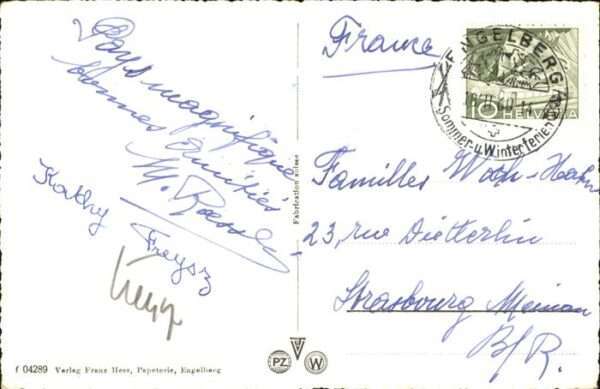 Pays magnifique
bonnes Amitiés
M.
Kathy Freysz
France
ENGELBERG
Sommer-u.Winterferien
10 HELVETIA
Familles
23, rue Dietterlin
Strasbourg Meinau
B/R.
Fabrication Suisse
PZ W
f 04289 Verlag Franz Hess, Papeterie, Engelberg